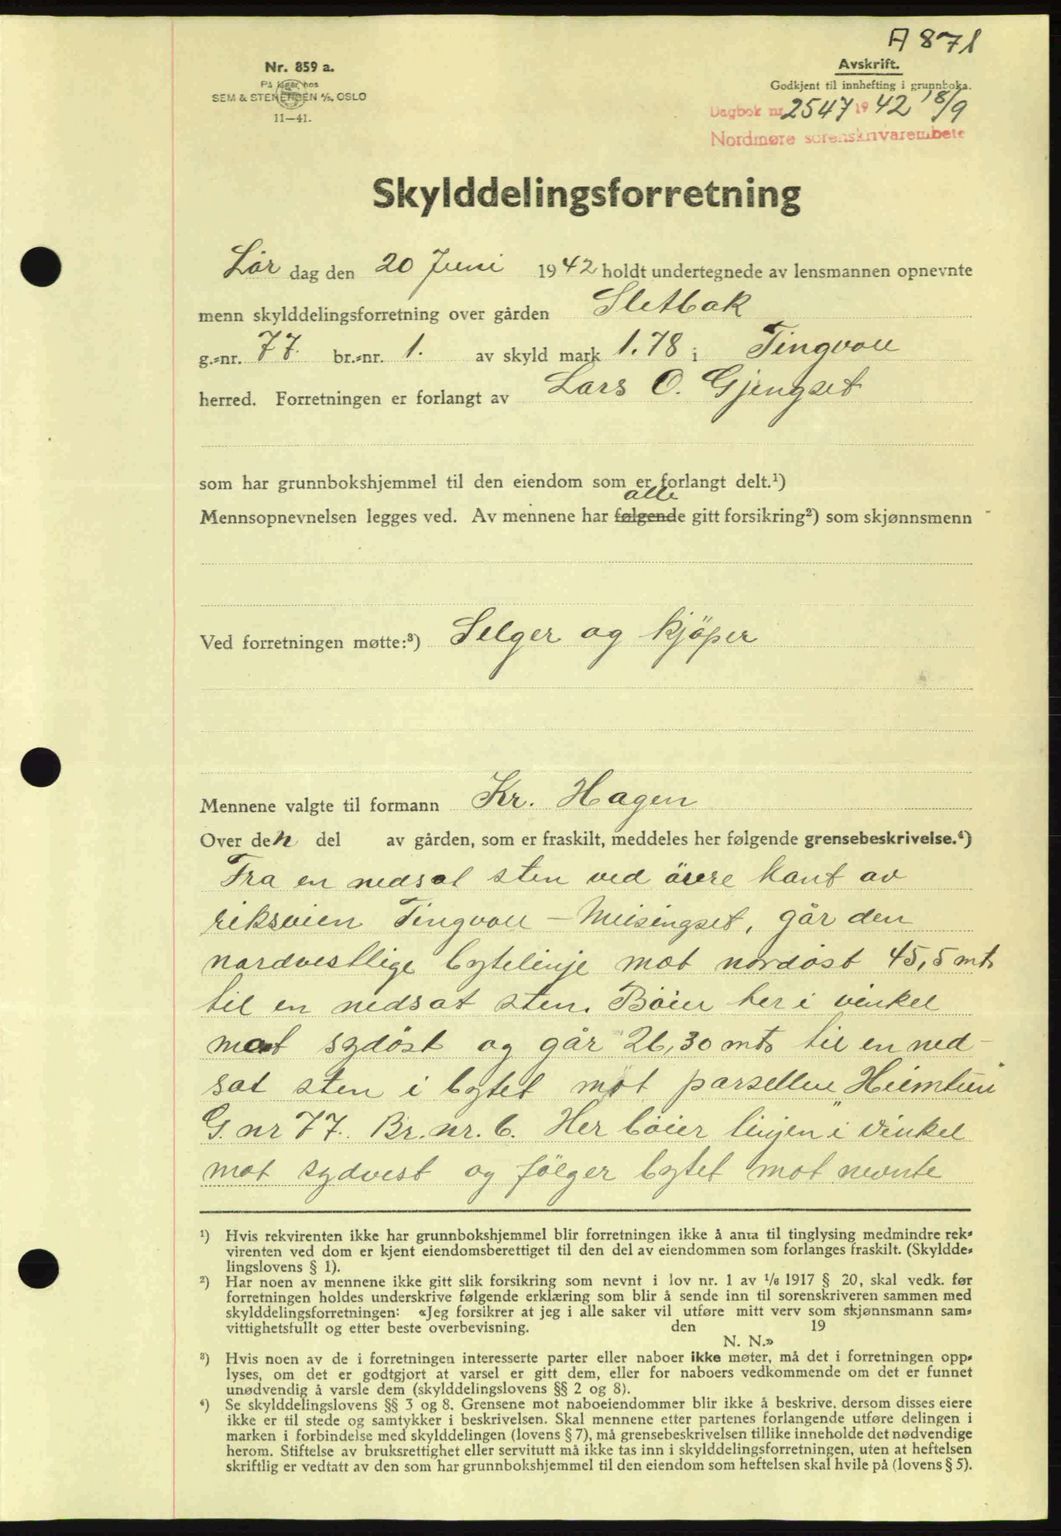 A 871
Nr. 859 a.
På lager hos
SEM & STENERSEN A/S, OSLO
11—41.
Avskrift.
Godkjent til innhefting i grunnboka.
Dagbok nr. 2547 1942 18/9
Nordmøre sorenskrivarembete
Skylddelingsforretning
Lör dag den 20 Juni 1942 holdt undertegnede av lensmannen opnevnte
menn skylddelingsforretning over gården Sletbak
g.-nr. 77. br.-nr. 1. av skyld mark 1.78 i Tingvoll
herred. Forretningen er forlangt av Lars O. Gjengset
som har grunnbokshjemmel til den eiendom som er forlangt delt.¹)
alle
Mennsopnevnelsen legges ved. Av mennene har følgende gitt forsikring²) som skjønnsmenn
Ved forretningen møtte:³) Selger og kjöper
Mennene valgte til formann Kr. Hagen
Over den del av gården, som er fraskilt, meddeles her følgende grensebeskrivelse.⁴)
Fra en nedsat sten ved övre kant av
riksveien Tingvoll – Meisingset, går den
nordvestlige bytelinje mot nordöst 45,5 mtr
til en nedsat sten. Böier her i vinkel
mot sydöst og går 26,30 mtr til en ned-
sat sten i bytet mot parsellen Heimtun
G. nr 77. Br. nr. 6. Her böier linjen i vinkel
mot sydvest og fölger bytet mot nevnte
¹) Hvis rekvirenten ikke har grunnbokshjemmel blir forretningen ikke å anta til tinglysing medmindre rek-
virenten ved dom er kjent eiendomsberettiget til den del av eiendommen som forlanges fraskilt. (Skyldde-
lingslovens § 1).
²) Har noen av mennene ikke gitt slik forsikring som nevnt i lov nr. 1 av 1/6 1917 § 20, skal vedk. før
forretningen holdes underskrive følgende erklæring som blir å sende inn til sorenskriveren sammen med
skylddelingsforretningen: «Jeg forsikrer at jeg i alle saker vil utføre mitt verv som skjønnsmann sam-
vittighetsfullt og etter beste overbevisning. den 19
N. N.»
³) Hvis noen av de i forretningen interesserte parter eller naboer ikke møter, må det i forretningen opp-
lyses, om det er godtgjort at varsel er gitt dem, eller for naboers vedkommende om det er funnet
unødvendig å varsle dem (skylddelingslovens §§ 2 og 8).
⁴) Se skylddelingslovens §§ 3 og 8. Grensene mot naboeiendommer blir ikke å beskrive, dersom disses eiere
ikke er til stede og samtykker i beskrivelsen. Skal mennene etter partenes forlangende utføre delingen i
marken i forbindelse med skylddelingen (lovens § 7), må grensebeskrivelsen tillike inneholde det nødvendige
herom. Stiftelse av bruksrettighet eller servitutt må ikke tas inn i skylddelingsforretningen, uten at heftelsen
skriftlig er vedtatt av den som har grunnbokshjemmel til den eiendom som heftelsen skal hvile på (lovens § 5).